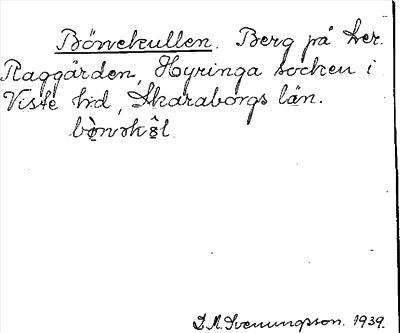 Bönekullen. Berg på her.
Raggården, Hyringa socken i
Viste hd, Skaraborgs län.
D.A. Svenungsson. 1939.